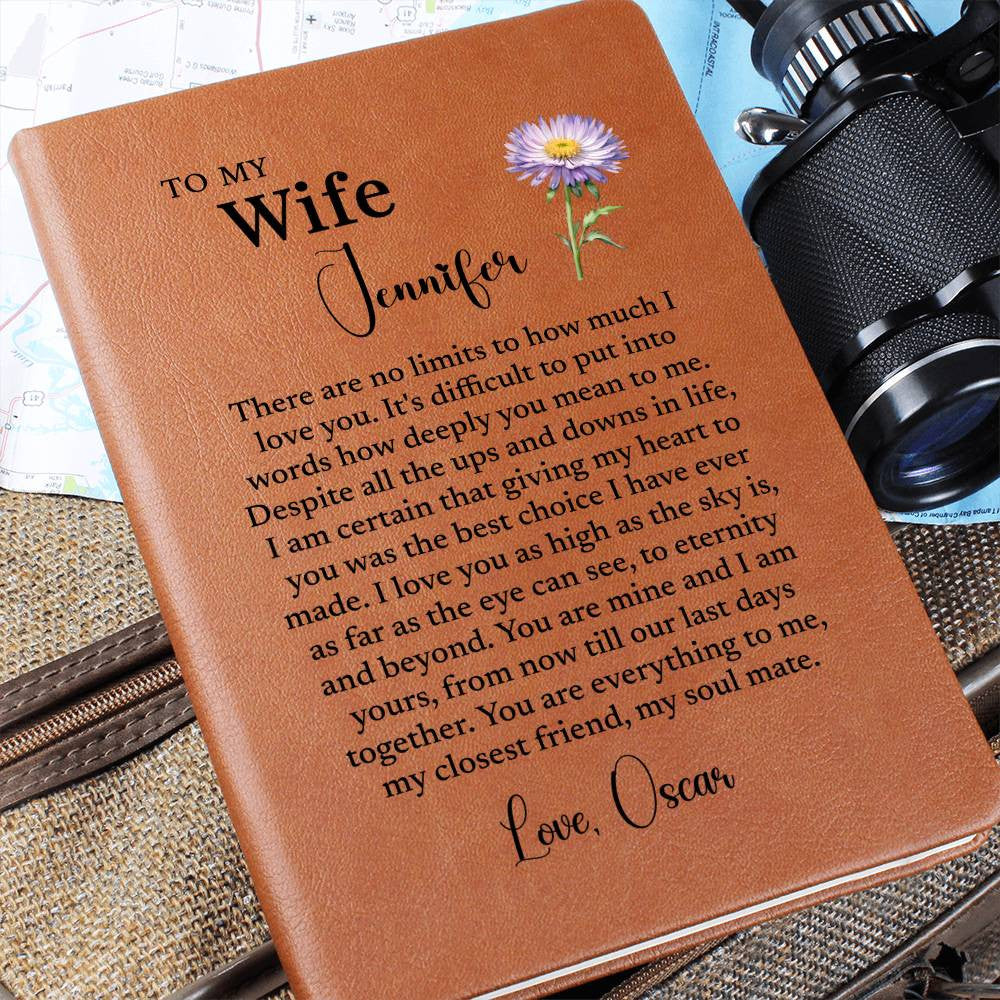 TO MY
Wife
Jennifer
There are no limits to how much I
love you. It's difficult to put into
words how deeply you mean to me.
Despite all the ups and downs in life,
I am certain that giving my heart to
you was the best choice I have ever
made. I love you as high as the sky is,
as far as the eye can see, to eternity
and beyond. You are mine and I am
yours, from now till our last days
together. You are everything to me,
my closest friend, my soul mate.
Love, Oscar
Parrish
Buffalo Creek
Golf Course
Woodlands G C
Airport
Dixie Sky
Ranch
41
INTRACOASTAL